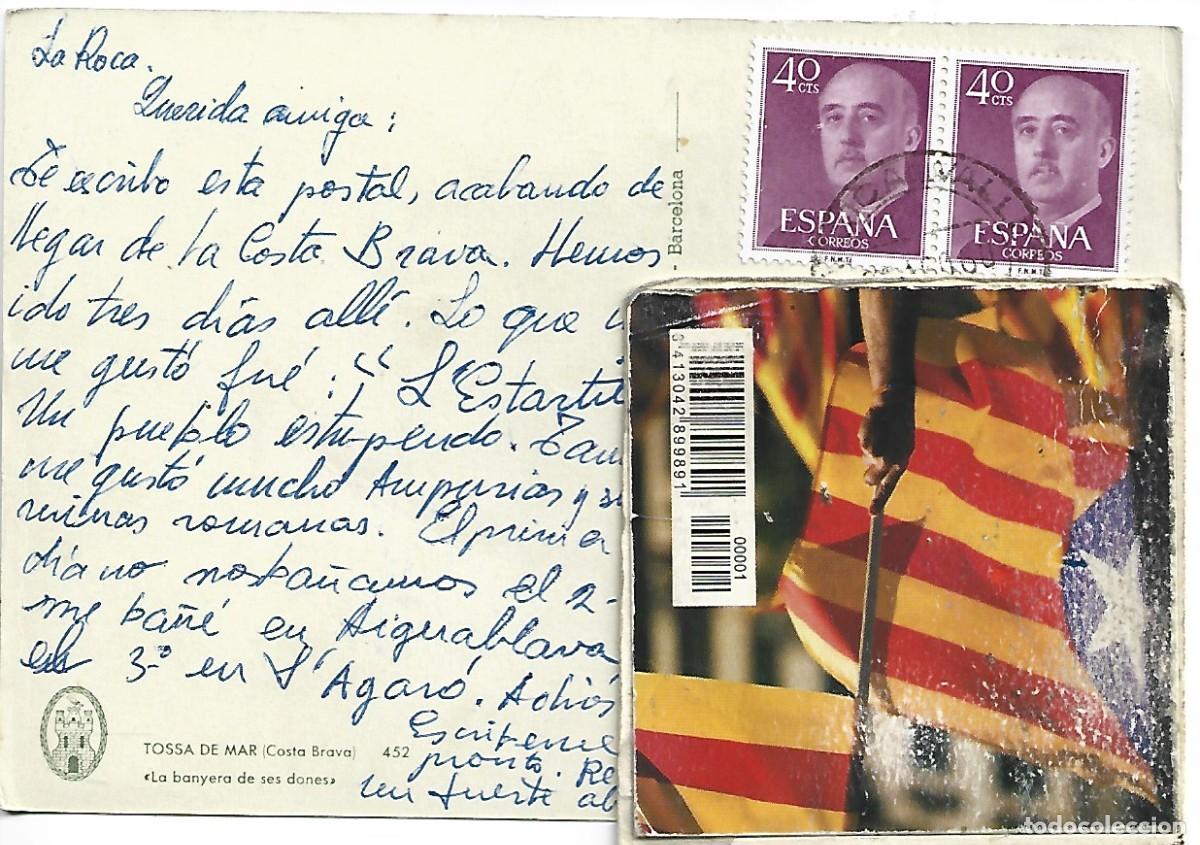 La Roca.
Querida amiga:
Te escribo esta postal, acabando de
llegar de la Costa Brava. Hemos
ido tres días allí. Lo que
me gustó fué: "L'Estartit
Un pueblo estupendo. Tam
me gustó mucho Ampurias y su
ruinas romanas. El prim
día no nos bañamos el 2-
me bañé en Aiguablava
el 3-º en S'Agaró. Adiós
Escribeme
pronto. Re
un fuerte ab
TOSSA DE MAR (Costa Brava) 452
«La banyera de ses dones»
- Barcelona
40 CTS
ESPAÑA
CORREOS
F.N.M.T.
40 CTS
ESPAÑA
CORREOS
F.N.M.T.
3413042899891
00001
todocoleccion